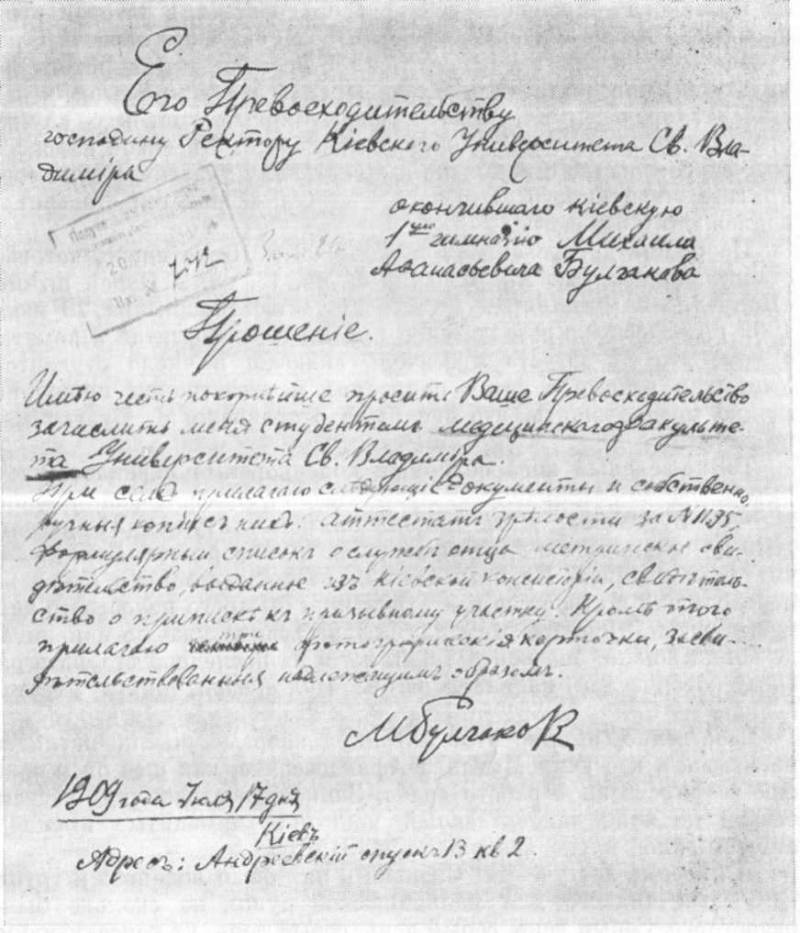 Его Превосходительству
господину Ректору Кіевскаго Университета Св. Вла-
диміра
окончившаго Кіевскую
1ую гимназію Михаила
Аѳанасьевича Булгакова
Прошеніе.
Имѣю честь покорнѣйше просить Ваше Превосходительство
зачислить меня студентомъ медицинскаго факульте-
та Университета Св. Владиміра.
При семъ прилагаю слѣдующіе документы и собственно-
ручныя копіи съ нихъ: аттестатъ зрѣлости за № 1195,
формулярный списокъ о службѣ отца метрическое сви-
дѣтельство, выданное изъ Кіевской консисторіи, свидѣтель-
ство о припискѣ къ призывному участку. Кромѣ того
прилагаю три фотографическія карточки, засви-
дѣтельствованныя надлежащимъ образомъ.
МБулгаков
1909 года Іюля 17 дня
Кіевъ
Адресъ: Андреевскій спускъ 13 кв 2.